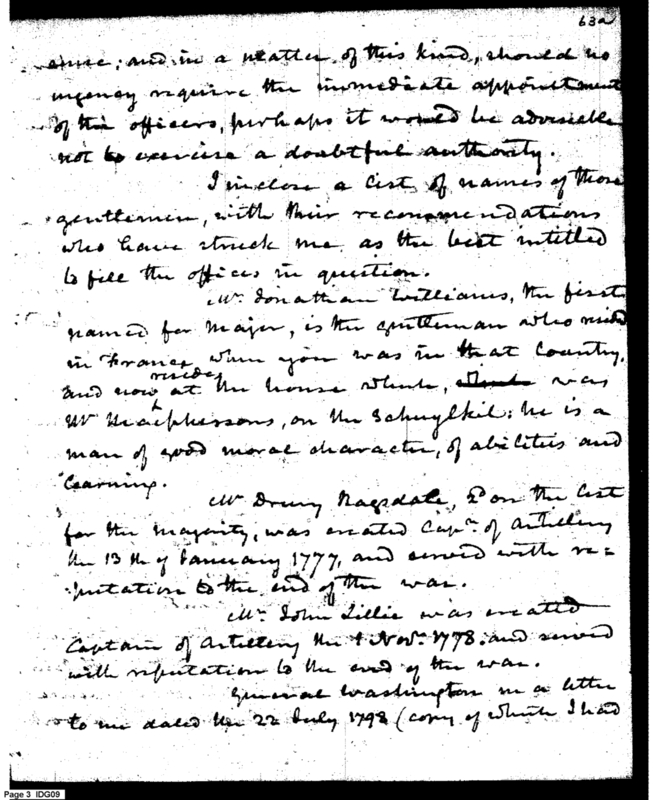 63a
ence; and in a matter of this kind, should no
urgency require the immediate appointment
of the officers, perhaps it would be adviseable
not to exercise a doubtful authority.
I inclose a list of names of those
gentlemen, with their recommendations
who have struck me as the best intitled
to fill the offices in question.
Mr. Jonathan Williams, the first
named for Major, is the gentleman who resided
in France when you was in that Country,
resides
and now at the house which, was
Mr Macphersons, on the Schuylkil: he is a
man of good moral character, of abilities and
learning.
Mr Drury Ragsdale, 2d on the list
for the majority, was created Capn. of Artillery
the 13th of January 1777, and served with re=
putation to the end of the war.
Mr. John Lillie was created
Captain of Artillery the 1 Novr. 1778. and served
with reputation to the end of the war.
General Washington in a letter
to me dated the 22 July 1798 (copy of which I had
Page 3 IDG09